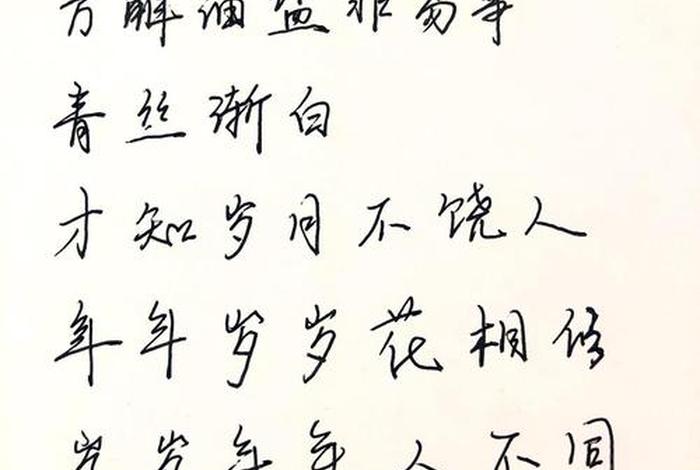 方解油盐非易事
青丝渐白
才知岁月不饶人
年年岁岁花相似
岁岁年年人不同